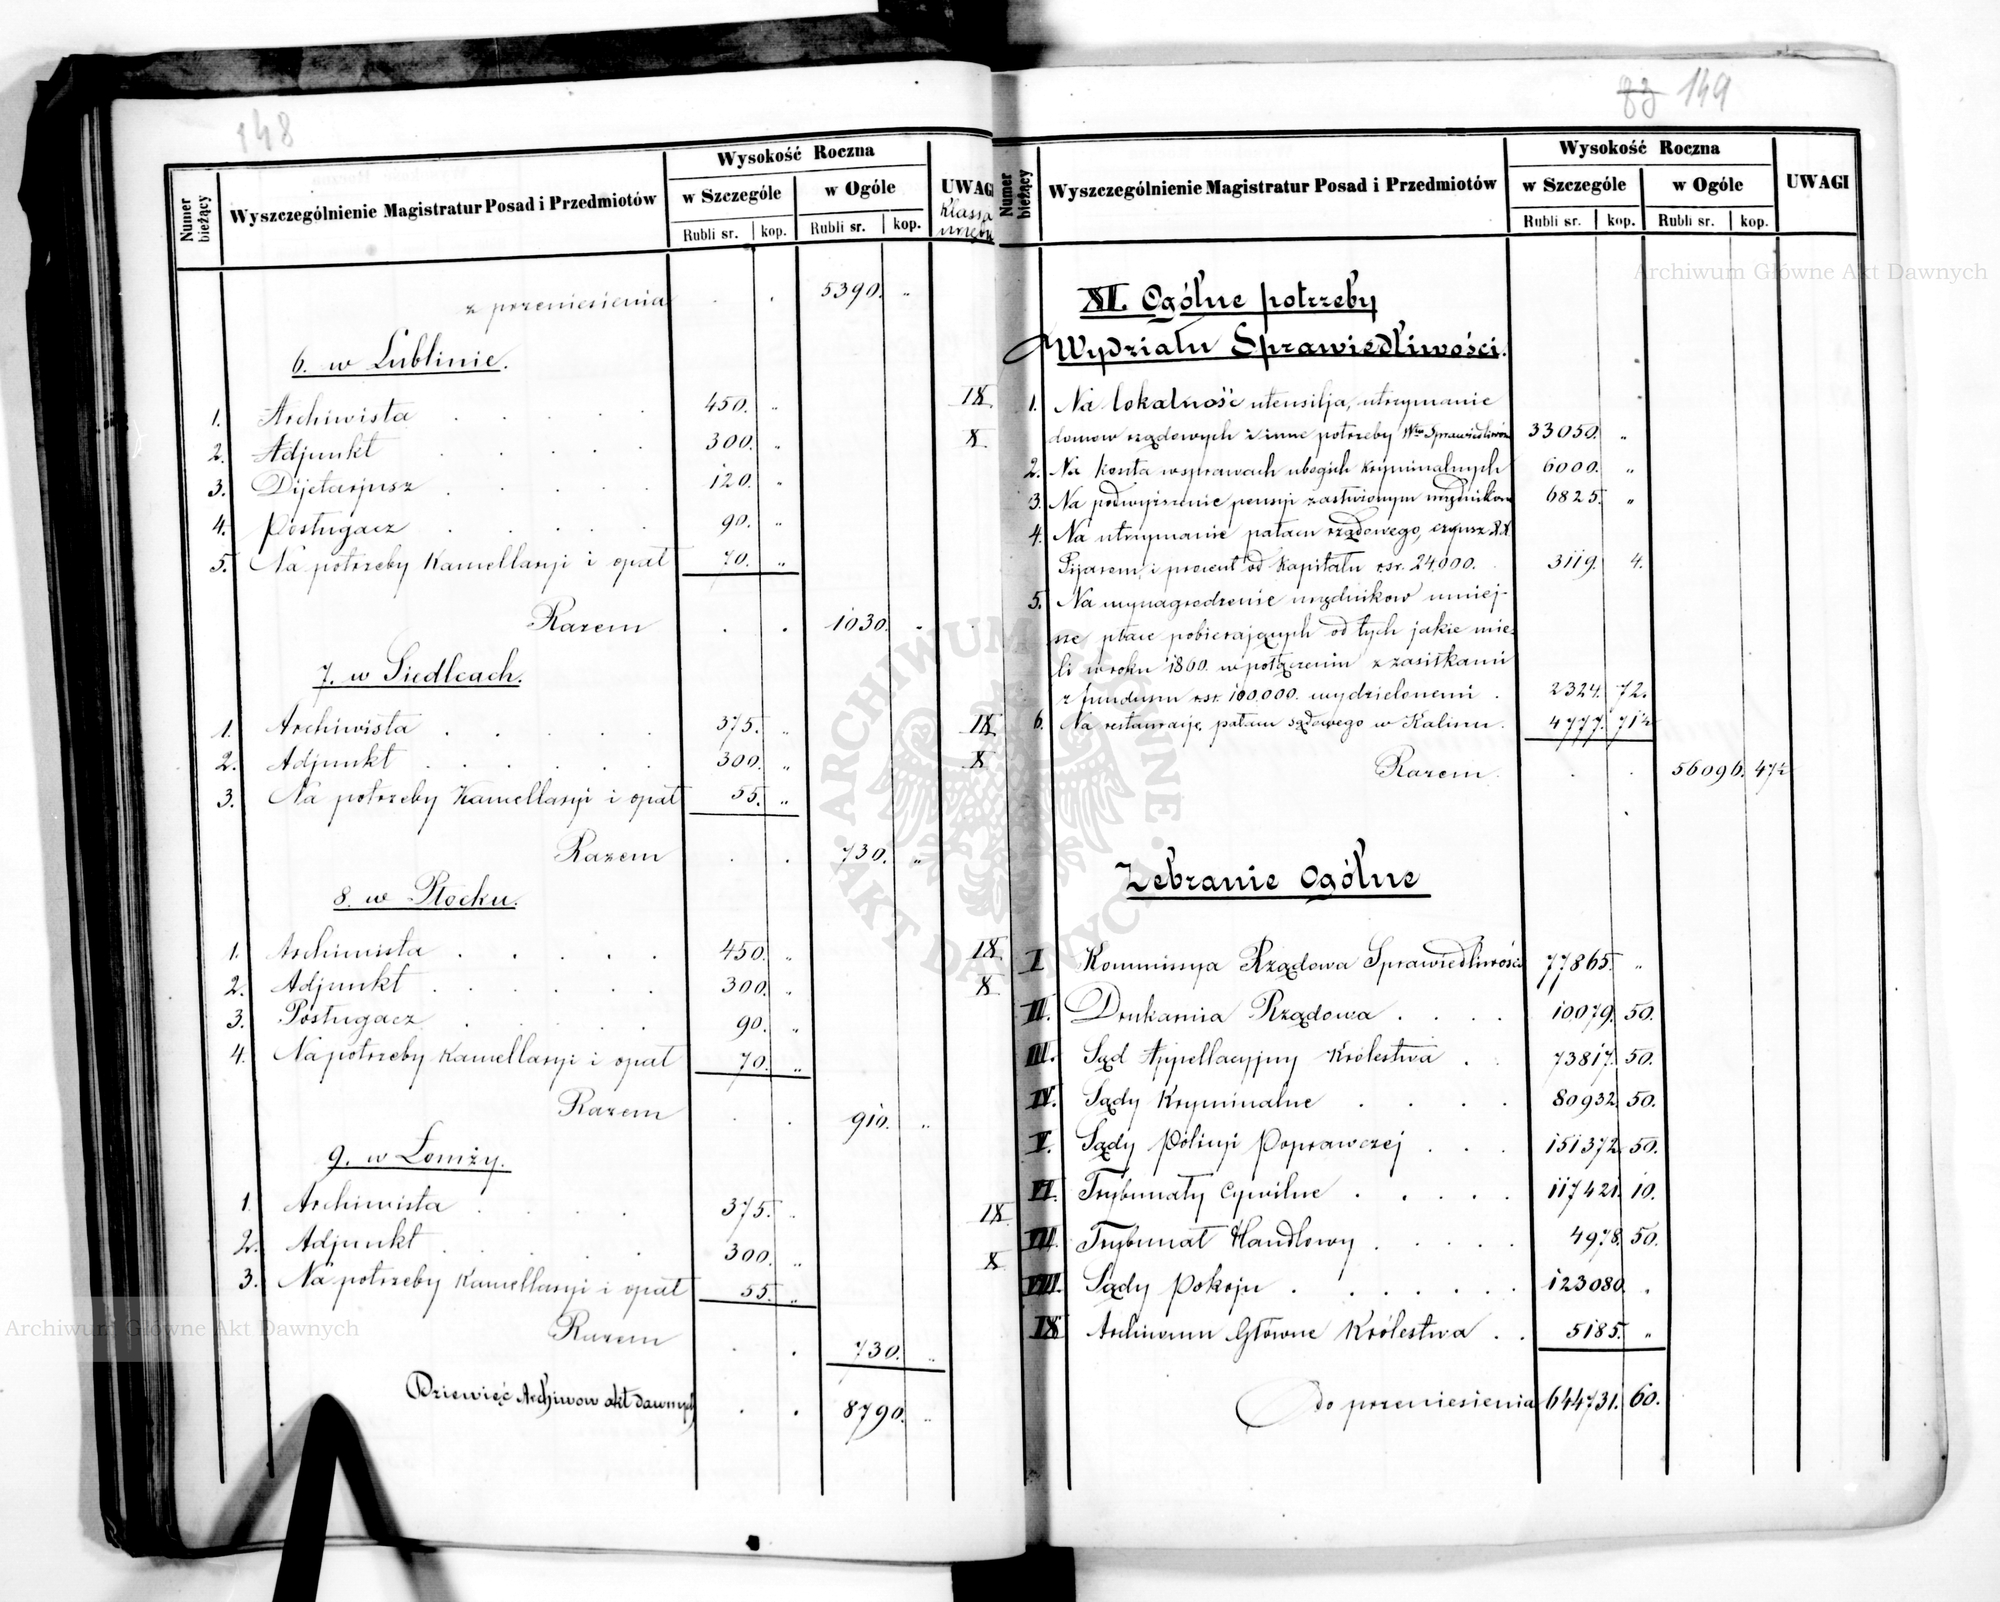 148
Numer bieżący
Wyszczególnienie Magistratur Posad i Przedmiotów
Wysokość Roczna
w Szczególe
w Ogóle
Rubli sr. kop. Rubli sr. kop.
UWAGI
Klassa
z przeniesienia . . 5390. „
6. w Lublinie.
1. Archiwista . . . . . 450. „ IX
2. Adjunkt . . . . . 300. „ X
3. Dijetarjusz . . . . . 120. „
4. Posługacz . . . . . 90. „
5. Na potrzeby Kancellaryi i opał 70. „
Razem . . 1030. „
7. w Siedlcach.
1. Archiwista . . . . . 375. „ IX
2. Adjunkt . . . . . . 300. „ X
3. Na potrzeby Kancellaryi i opał 55. „
Razem . . 730. „
8. w Płocku.
1. Archiwista . . . . . 450. „ IX
2. Adjunkt . . . . . . 300. „ X
3. Posługacz . . . . . 90. „
4. Na potrzeby Kancellaryi i opał 70. „
Razem . . 910. „
9. w Łomży.
1. Archiwista . . . . 375. „ IX
2. Adjunkt . . . . . 300. „ X
3. Na potrzeby Kancellaryi i opał 55. „
Razem . . 730. „
Dziewięć Archiwow akt dawnych . . 8790. „
83 149
Numer bieżący
Wyszczególnienie Magistratur Posad i Przedmiotów
Wysokość Roczna
w Szczególe
w Ogóle
Rubli sr. kop. Rubli sr. kop.
UWAGI
XI. Ogólne potrzeby
Wydziału Sprawiedliwości.
1. Na lokalność utensilja, utrzymanie
domow rządowych i inne potrzeby 33050. „
2. Na koszta w sprawach ubogich kryminalnych 6000. „
3. Na podwyższenie pensyi zasłużonym urzędnikom 6825. „
4. Na utrzymanie pałacu rządowego, czynsz XX
Pijarom, i procent od kapitału rsr. 24,000. 3119. 4.
5. Na wynagrodzenie urzędnikow mniej-
sze płace pobierających od tych jakie mie-
li w roku 1860. w połączeniu z zasiłkami
z funduszu rsr. 100,000. wydzielonemi . 2324. 72.
6. Na restauracje pałacu sądowego w Kaliszu. 4777. 71½
Razem . . . 56096. 47½
Zebranie Ogólne
I Kommissya Rządowa Sprawiedliwości 77865. „
II. Drukarnia Rządowa . . . . 10079. 50.
III. Sąd Appellacyjny Królestwa . . 73817. 50.
IV. Sądy Kryminalne . . . . 80932. 50.
V. Sądy Policyi Poprawczej . . . 151372. 50.
VI. Trybunały Cywilne . . . . . 117421. 10.
VII. Trybunał Handlowy . . . . . 4978. 50.
VIII. Sądy Pokoju . . . . . . 123080. .
IX Archiwum Główne Królestwa . . 5185. „
Do przeniesienia 644731. 60.
Archiwum Główne Akt Dawnych
Archiwum Główne Akt Dawnych
ARCHIWUM GŁÓWNE · AKT DAWNYCH ·